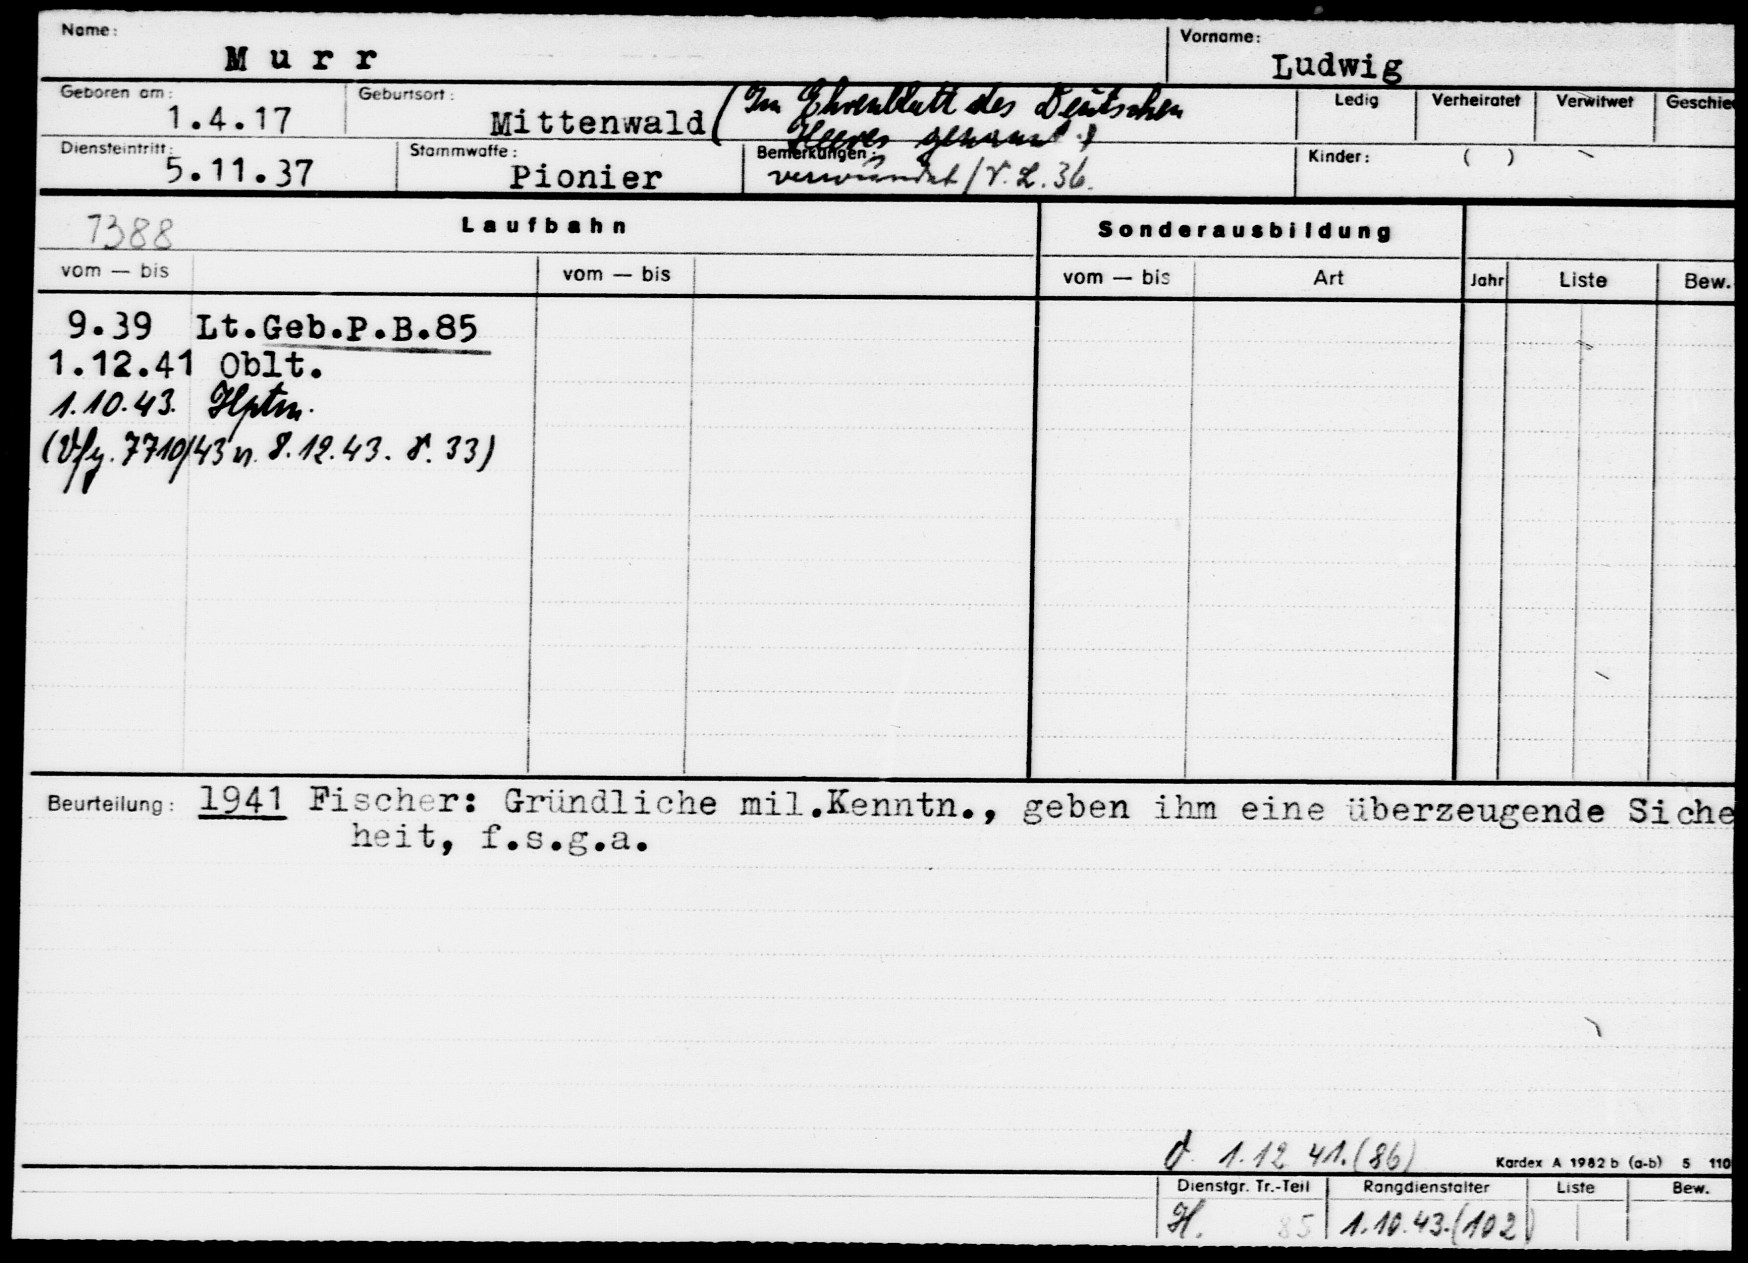 Name: Murr Vorname: Ludwig
Geboren am: 1.4.17 Geburtsort: Mittenwald (Im Ehrenblatt des Deutschen Heeres genannt.) Ledig Verheiratet Verwitwet Geschie
Diensteintritt: 5.11.37 Stammwaffe: Pionier Bemerkungen: verwundet / V. L. 36. Kinder: ( )
7388 Laufbahn Sonderausbildung
vom — bis vom — bis vom — bis Art Jahr Liste Bew.
9.39 Lt.Geb.P.B.85
1.12.41 Oblt.
1.10.43. Hptm.
(Vfg. 7710/43 v. 8.12.43. 33)
Beurteilung: 1941 Fischer: Gründliche mil.Kenntn., geben ihm eine überzeugende Siche
heit, f.s.g.a.
1.12 41. (86) Kardex A 1982 b (a-b) 5 110
Dienstgr. Tr.-Teil Rangdienstalter Liste Bew.
H. 85 1.10.43.(102)